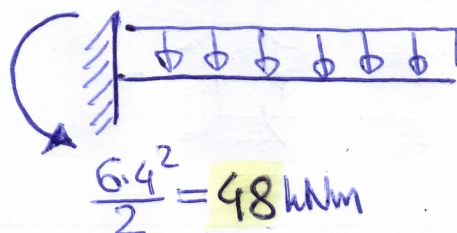 6·4²/2 = 48 kNm